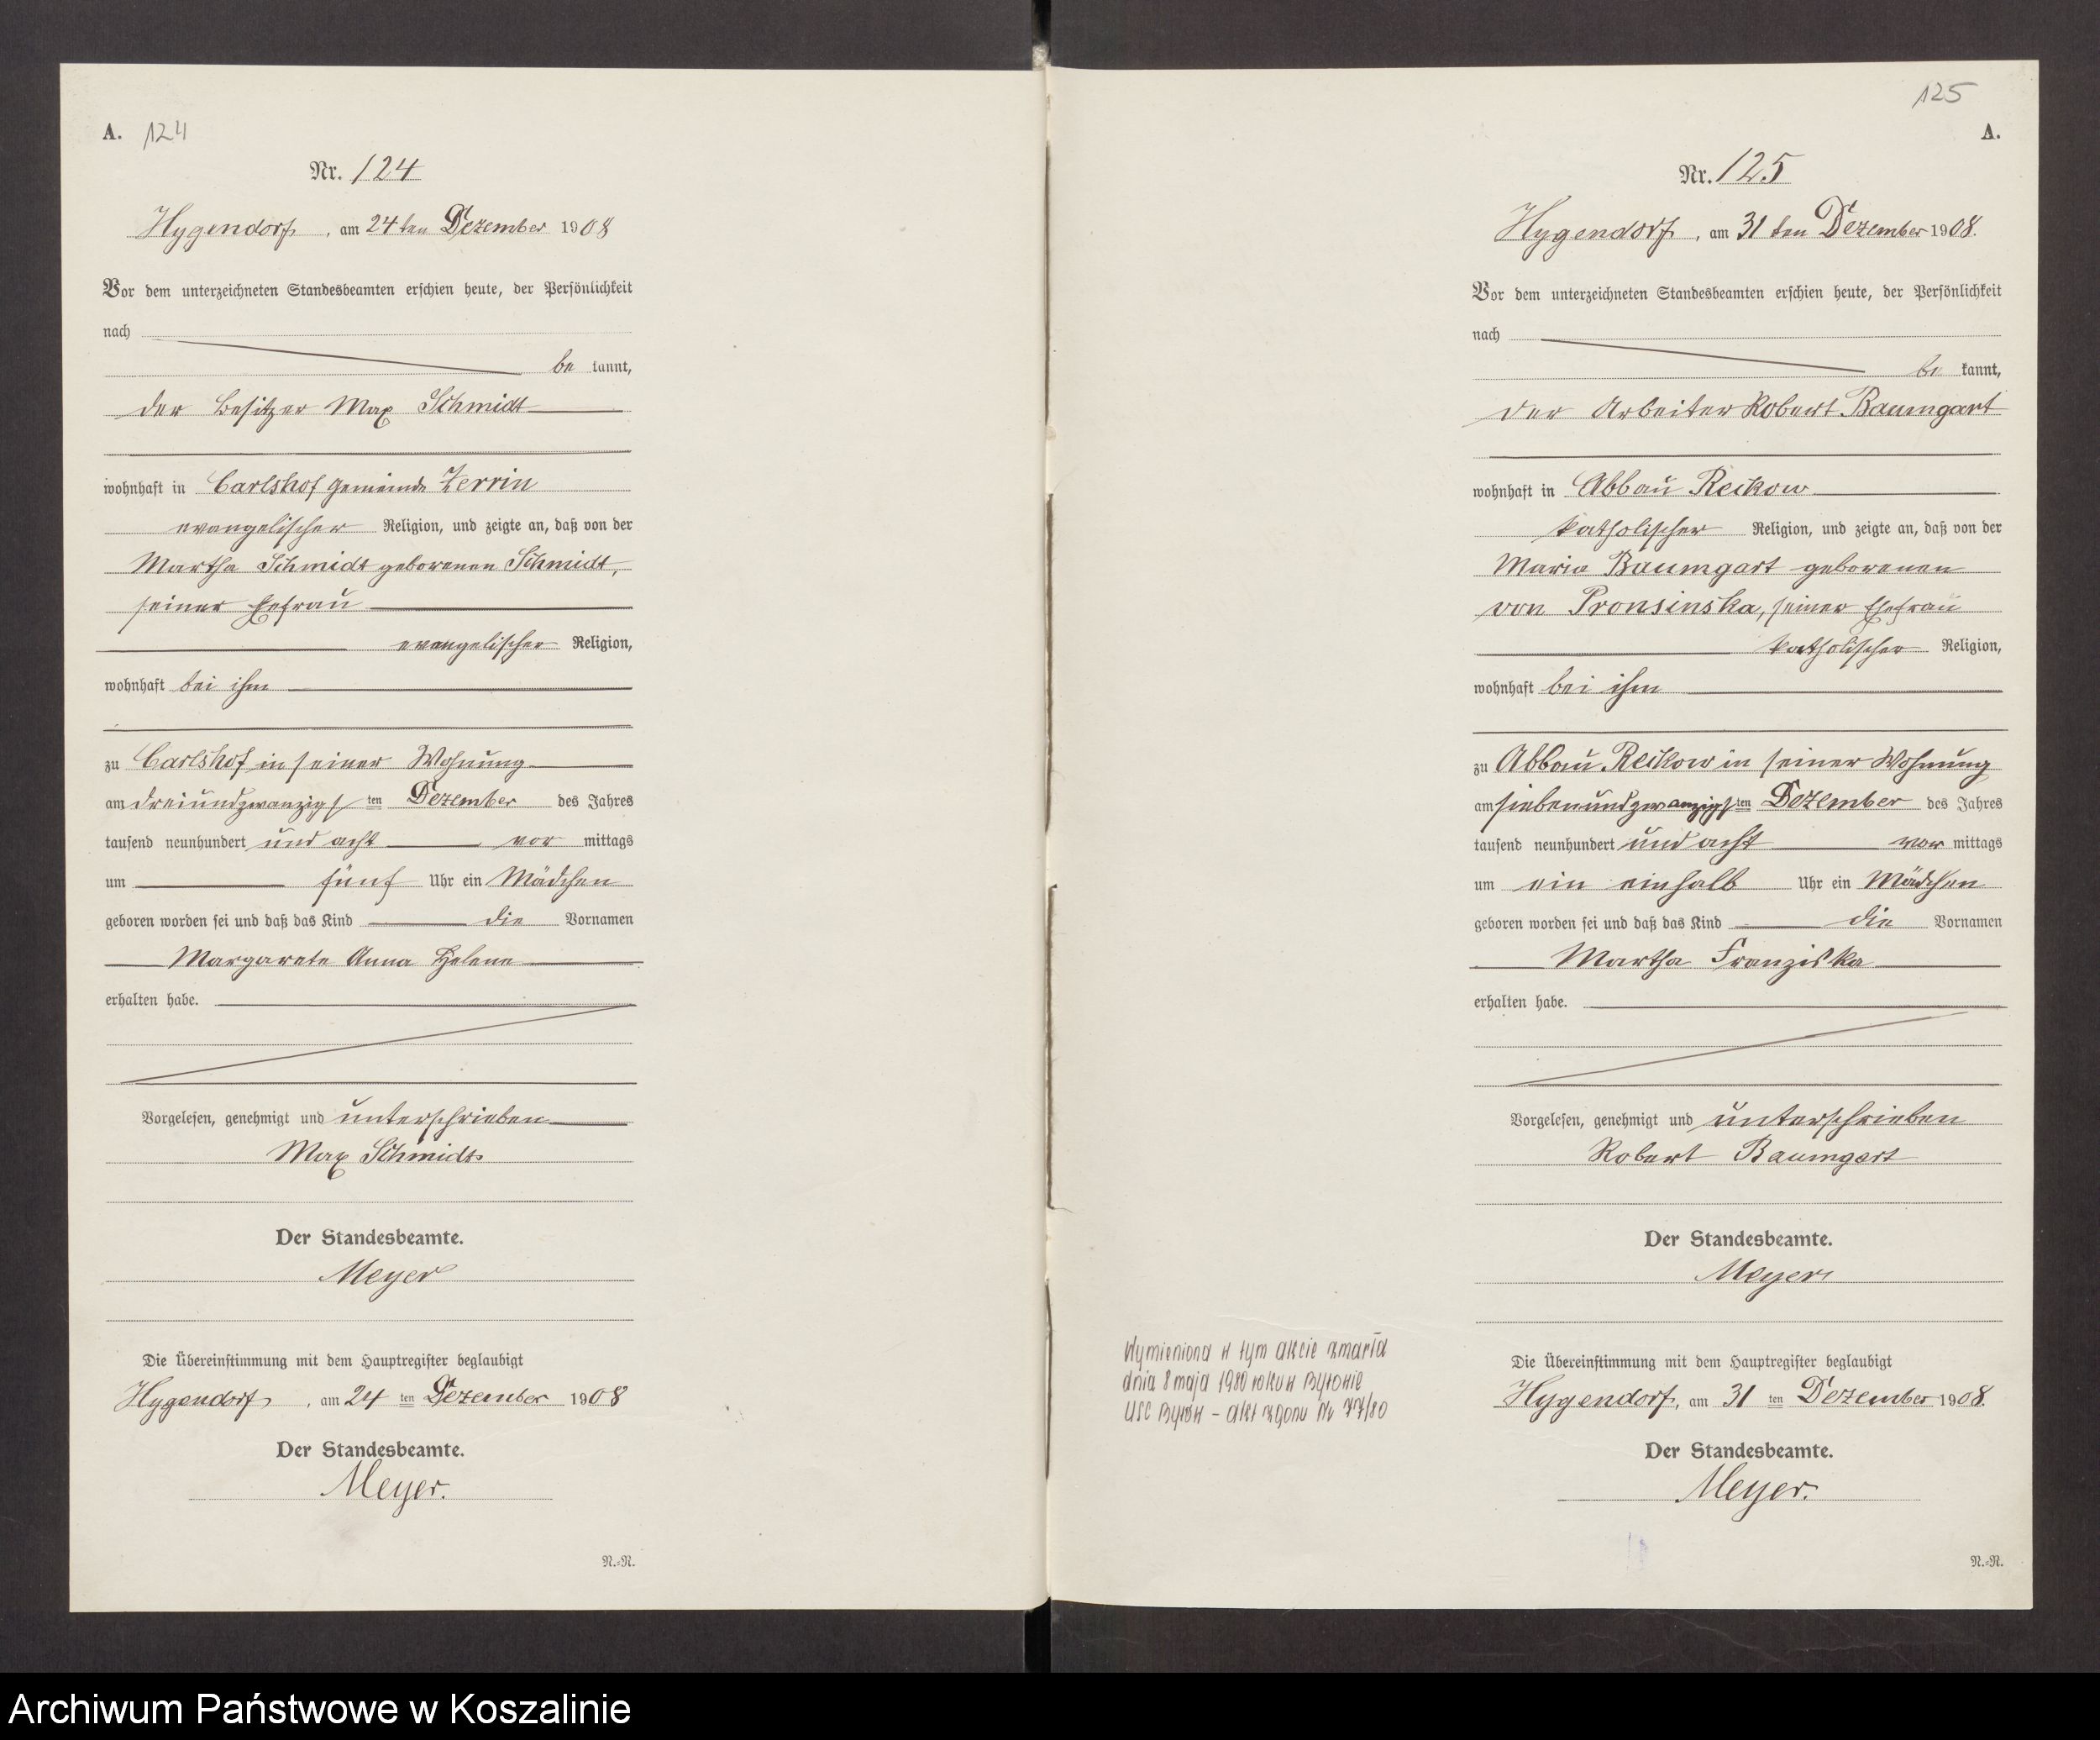 A. 124
Nr. 124
Hygendorf, am 24 ten Dezember 1908
Vor dem unterzeichneten Standesbeamten erschien heute, der Persönlichkeit
nach
be kannt,
der Besitzer Max Schmidt
wohnhaft in Carlshof Gemeinde Zerrin
evangelischer Religion, und zeigte an, daß von der
Martha Schmidt geborenen Schmidt,
seiner Ehefrau
evangelischer Religion,
wohnhaft bei ihm
zu Carlshof in seiner Wohnung
am dreiundzwanzigsten Dezember des Jahres
tausend neunhundert und acht vor mittags
um fünf Uhr ein Mädchen
geboren worden sei und daß das Kind die Vornamen
Margarete Anna Helene
erhalten habe.
Vorgelesen, genehmigt und unterschrieben
Max Schmidt
Der Standesbeamte.
Meyer
Die Übereinstimmung mit dem Hauptregister beglaubigt
Hygendorf, am 24 ten Dezember 1908
Der Standesbeamte.
Meyer.
N.=N.
125
A.
Nr. 125
Hygendorf, am 31 ten Dezember 1908.
Vor dem unterzeichneten Standesbeamten erschien heute, der Persönlichkeit
nach
be kannt,
der Arbeiter Robert Baumgart
wohnhaft in Abbau Reckow
katholischer Religion, und zeigte an, daß von der
Maria Baumgart geborenen
von Pronsinska, seiner Ehefrau
katholischer Religion,
wohnhaft bei ihm
zu Abbau Reckow in seiner Wohnung
am siebenundzwanzigsten Dezember des Jahres
tausend neunhundert und acht vor mittags
um ein einhalb Uhr ein Mädchen
geboren worden sei und daß das Kind die Vornamen
Martha Franziska
erhalten habe.
Vorgelesen, genehmigt und unterschrieben
Robert Baumgart
Der Standesbeamte.
Meyer
Wymieniona w tym akcie zmarła
dnia 8 maja 1980 roku w Bytowie
USC Bytów - akt zgonu Nr 77/80
Die Übereinstimmung mit dem Hauptregister beglaubigt
Hygendorf, am 31 ten Dezember 1908.
Der Standesbeamte.
Meyer.
N.=N.
Archiwum Państwowe w Koszalinie